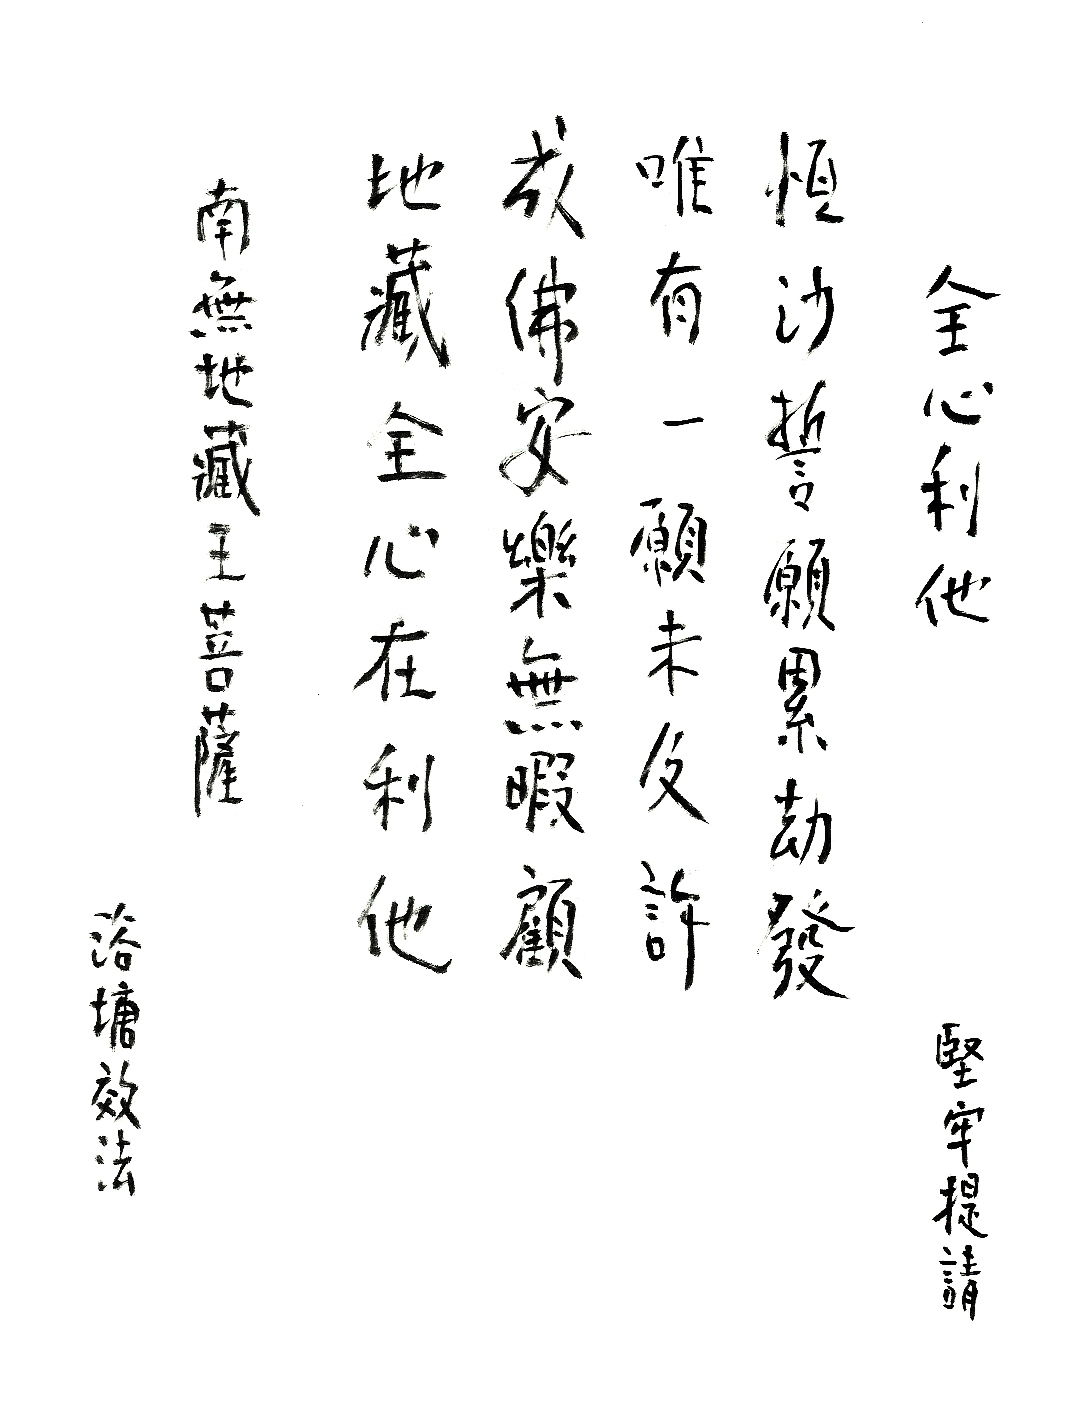 全心利他
堅牢提請
恆沙誓願累劫發
唯有一願未及許
成佛安樂無暇顧
地藏全心在利他
南無地藏王菩薩
浴塘效法